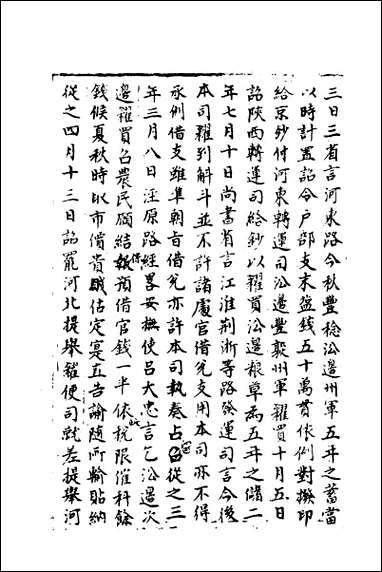 三日三省言河東路今秋豐稔沿邊州軍五年之蓄當
以時計置詔令戶部支末鹽錢五十萬貫依例對撥印
給京鈔付河東轉運司沿邊豐熟州軍糴買十月五日
詔陝西轉運司給鈔以糴買沿邊糧草為五年之儲二
年七月十日尚書省言江淮荆浙等路發運司言今後
本司糴到斛斗並不許諸處官借兌支用本司亦不得
承例借支雖準朝旨借兌亦許本司執奏占留從之三
年三月八日涇原路經畧安撫使呂大忠言乞沿邊次
邊糴買召農民願結保預借官錢一半依稅限催科餘
錢候夏秋時以市價貴賤估定寔直告諭隨所輸貼納
從之四月十三日詔罷河北提舉糴便司就差提舉河